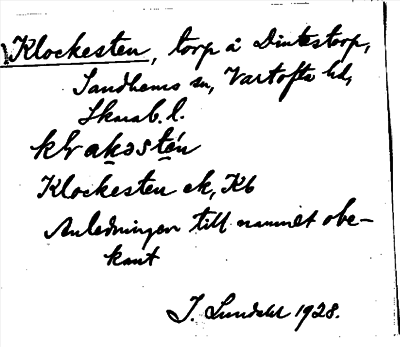 Klockesten, torp å Dintestorp,
Sandhems sn, Vartofta hd,
Skarab. l.
Klockesten ek, Kb
Anledningen till namnet obe-
kant
J. Lundahl 1928.